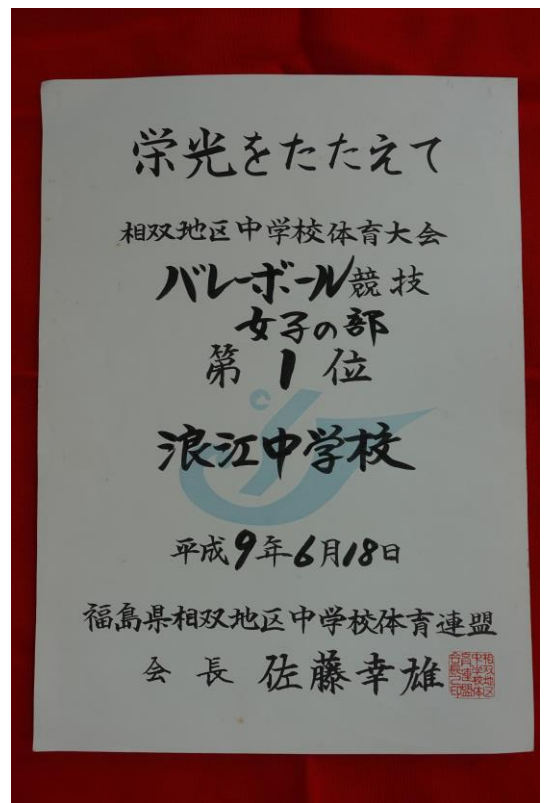 栄光をたたえて
相双地区中学校体育大会
バレーボール競技
女子の部
第1位
浪江中学校
平成9年6月18日
福島県相双地区中学校体育連盟
会長 佐藤幸雄
相双地区
中学校体
育連盟
会長之印